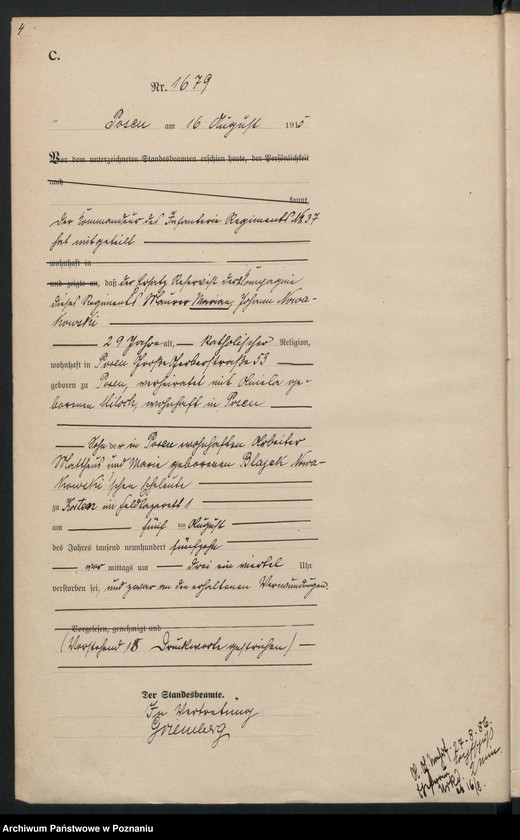 4
C.
Nr. 1679
Posen am 16 August 1915
Vor dem unterzeichneten Standesbeamten erschien heute, der Persönlichkeit
nach
kannt,
der Commandeur des Infanterie Regiments № 37
hat mitgeteilt
wohnhaft in
und zeigte an, daß der Ersatz Reservist der Compagnie
dieses Regiments Maurer Marian, Johann Nowa-
kowski
29 Jahre alt, katholischer Religion,
wohnhaft in Posen Große Gerberstraße 53
geboren zu Posen, verheiratet mit Aniela ge-
borenen Miloch, wohnhaft in Posen
Sohn der in Posen wohnhaften Arbeiter
Matthäus und Marie geborenen Blazek Nowa-
kowski'schen Eheleute
zu im Feldlazarett 1
am fünf ten August
des Jahres tausend neunhundert fünfzehn
vor mittags um drei ein viertel Uhr
verstorben sei, und zwar an den erhaltenen Verwundungen.
Vorgelesen, genehmigt und
(Vorstehend 18 Druckworte gestrichen)
Der Standesbeamte.
In Vertretung
27.8.86.
16/8.
Archiwum Państwowe w Poznaniu